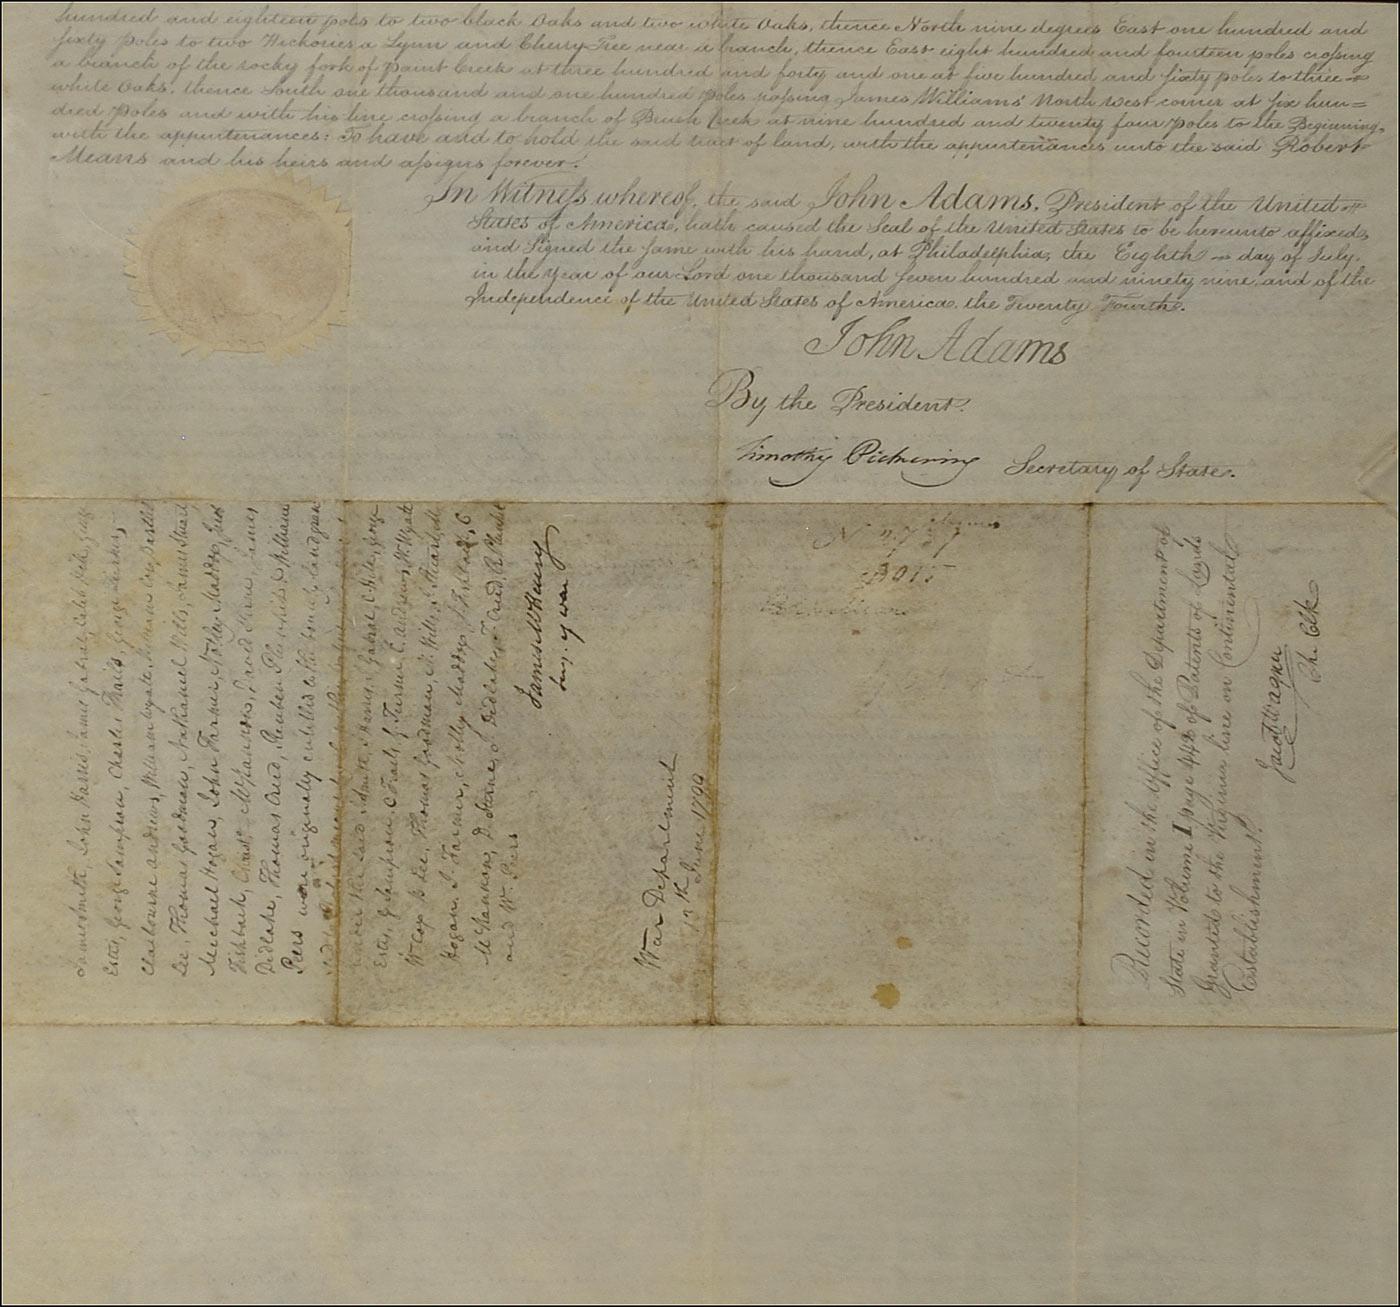 hundred and eighteen poles to two black Oaks and two white Oaks, thence North nine degrees East one hundred and
sixty poles to two Hickories a Lynn and Cherry Tree near a branch, thence East eight hundred and fourteen poles crossing
a branch of the rocky fork of Paint Creek at three hundred and forty and one at five hundred and sixty poles to three
white Oaks, thence South one thousand and one hundred Poles passing James Williams' North west corner at six hun=
dred Poles and with his line crossing a branch of Brush Creek at nine hundred and twenty four Poles to the Beginning,
with the appurtenances: To have and to hold the said tract of land, with the appurtenances unto the said Robert
Means and his heirs and assigns forever.
In Witness whereof, the said John Adams, President of the United
States of America, hath caused the Seal of the United States to be hereunto affixed,
and Signed the same with his hand, at Philadelphia, the Eighth day of July,
in the Year of our Lord one thousand seven hundred and ninety nine, and of the
Independence of the United States of America, the Twenty Fourth.
John Adams
By the President.
Timothy Pickering Secretary of State.
James Smith, John Harris, James Gabral, Caleb Hile,
Estes, George Sampson, Charles Trails, George Turner,
Claibourne andrews, William wyatt,
Lee, Thomas Goodman, Nathaniel Wills, James Stuart
Michael Hogan, John Farmer, Notley Maddox,
Fishback,
Didlake, Thomas Cred, Reuben Plunkett & William
Peers were originally entitled to the bounty land
said Smith, Harris, Gabral, C. Hile,
Estes, G Sampson, C Trails, G. Turner, C. andrews, W. Wyatt
Lee, Thomas Goodman, N. Wills,
Hogan, J. Farmer, Notley Maddox, J. Fishback, C
R. Plunkett
and W. Peers
James McHenry
Secy. of war
War Department
1799
Recorded in the Office of the Department of
State in Volume I page 442 of Patents of Lands
Granted to the Virginia line on Continental
Establishment.
Jacob Wagner
Ch. Clk